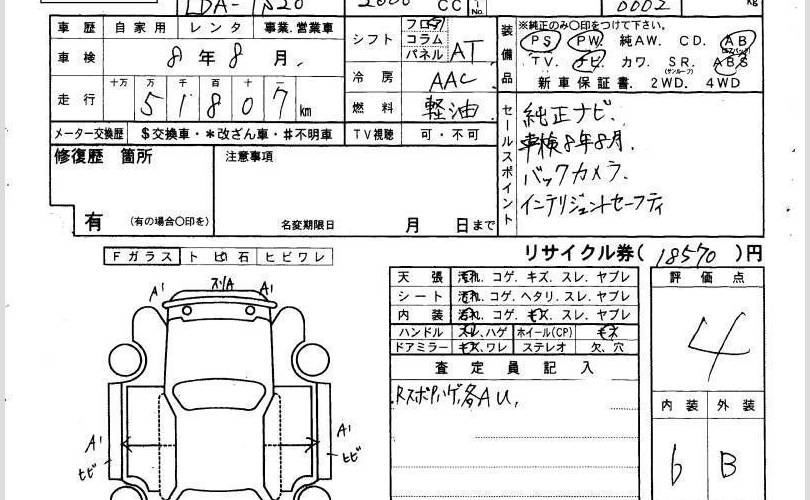 LDA- 2000 CC 0002 kg
車歴 自家用 レンタ 事業.営業車
車検 8年8月
走行 十万 万 千 百 十 一
51807 km
メーター交換歴 $交換車・*改ざん車・#不明車
シフト フロア コラム パネル AT
冷房 AAC
燃料 軽油
TV視聴 可・不可
装備品 ※純正のみ○印をつけて下さい。
PS. PW. 純AW. CD. AB (エアバッグ)
TV. ナビ. カワ. SR. (サンルーフ) ABS
新車保証書. 2WD. 4WD
セールスポイント
純正ナビ
車検8年8月.
バックカメラ.
インテリジェントセーフティ
修復歴 箇所
有 (有の場合○印を)
注意事項
名変期限日 月 日まで
リサイクル券( 18570 )円
Fガラス トビ石 ヒビワレ
A' スリA A'
A' ヒビ
A' ヒビ
天張 汚れ.コゲ.キズ.スレ.ヤブレ
シート 汚れ.コゲ.ヘタリ.スレ.ヤブレ
内装 汚れ.コゲ.キズ.スレ.ヤブレ
ハンドル スレ.ハゲ ホイール(CP) キズ
ドアミラー キズ.ワレ ステレオ 欠.穴
査定員記入
Rスポハゲ.各AU.
評価点
4
内装 外装
6 B